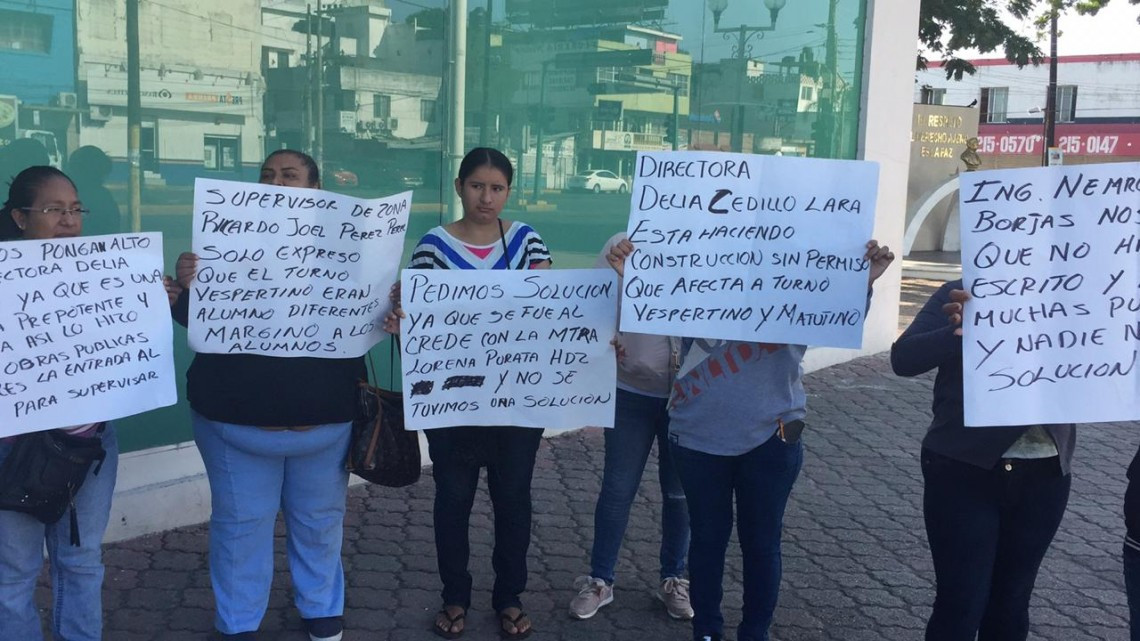 OS PONGAN ALTO
ECTORA DELIA
YA QUE ES UNA
A PREPOTENTE Y
A ASI LO HIZO
OBRAS PUBLICAS
RES LA ENTRADA AL
PARA SUPERVISAR
SUPERVISOR DE ZONA
RICARDO JOEL PEREZ
SOLO EXPRESO
QUE EL TURNO
VESPERTINO ERAN
ALUMNO DIFERENTES
MARGINO A LOS
ALUMNOS.
PEDIMOS SOLUCION
YA QUE SE FUE AL
CREDE CON LA MTRA
LORENA PURATA HDZ
Y NO SE
TUVIMOS UNA SOLUCION
DIRECTORA
DELIA CEDILLO LARA
ESTA HACIENDO
CONSTRUCCION SIN PERMISO
QUE AFECTA A TURNO
VESPERTINO Y MATUTINO
ING. NEMR
BORJAS NOS
QUE NO H
ESCRITO Y
MUCHAS PU
Y NADIE N
SOLUCION
EL RESPETO
DERECHO AJENO
ES LA PAZ
215-0570
215-0147